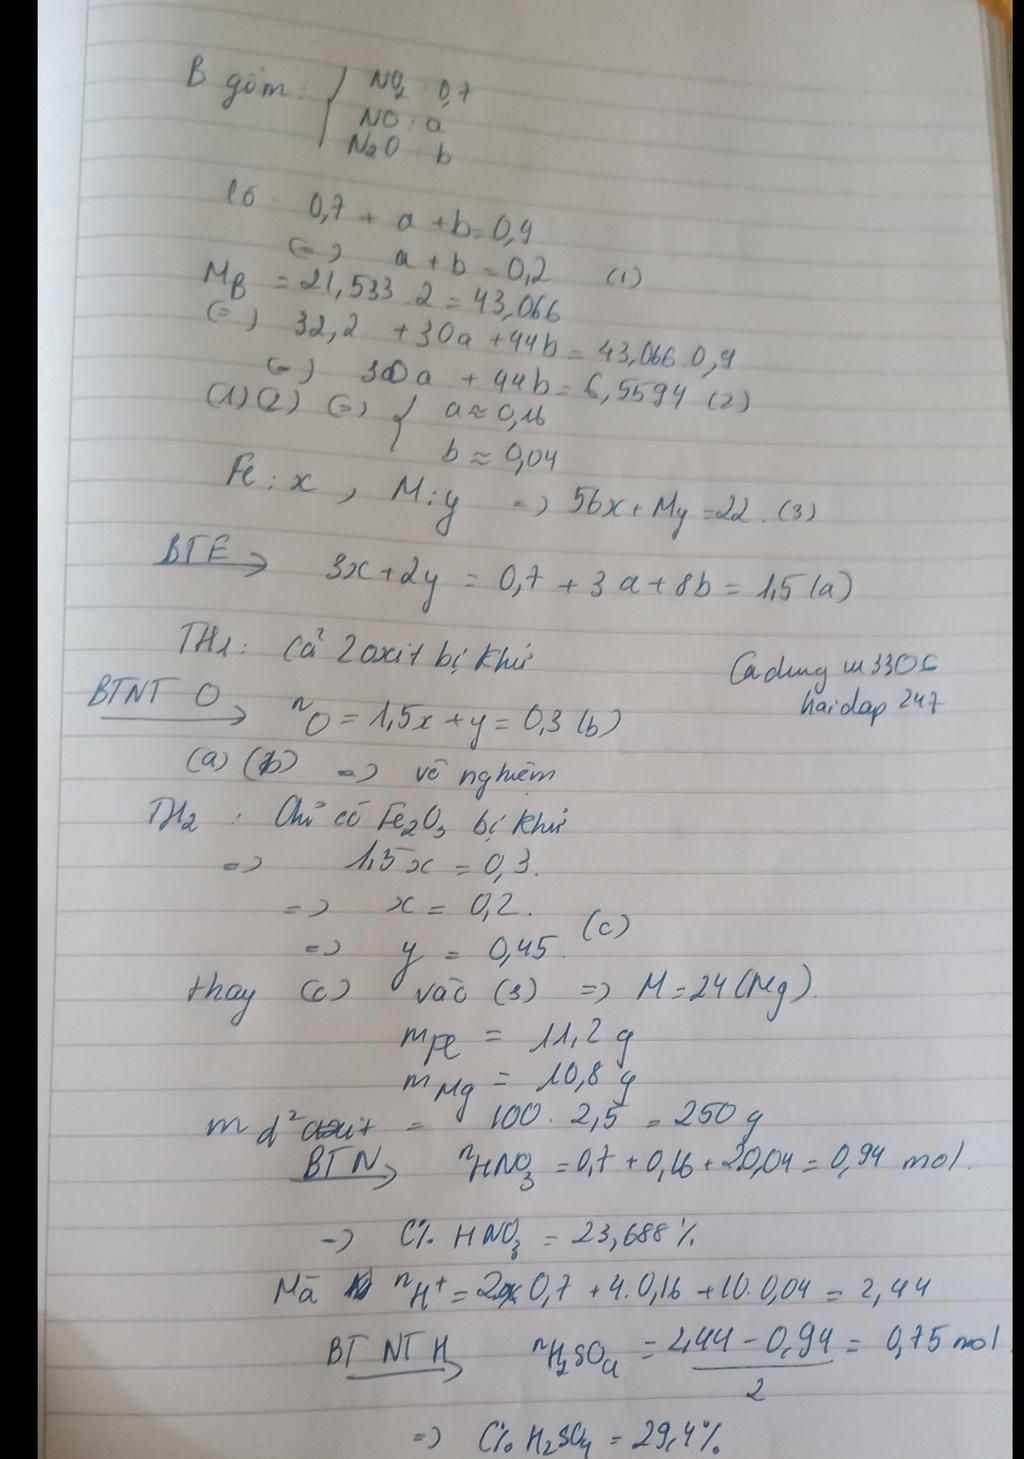 B gồm: { NO2: 0,7
NO: a
N2O: b
Có 0,7 + a + b = 0,9
(=) a + b = 0,2 (1)
MB = 21,533.2 = 43,066
(=) 32,2 + 30a + 44b = 43,066.0,9
(=) 30a + 44b = 6,5594 (2)
(1)(2) (=) { a ≈ 0,16
b ≈ 0,04
Fe: x, M: y => 56x + My = 22. (3)
BTE → 3x + 2y = 0,7 + 3a + 8b = 1,5 (a)
TH1: Cả 2 oxit bị khử
BTNT O → nO = 1,5x + y = 0,3 (b)
hoidap 247
(a) (b) => vô nghiệm
TH2: Chỉ có Fe2O3 bị khử
=> 1,5x = 0,3.
=> x = 0,2.
=> y = 0,45. (c)
thay (c) vào (3) => M = 24 (Mg).
mFe = 11,2 g
mMg = 10,8 g
m d² axit = 100. 2,5 = 250 g
BTN → nHNO3 = 0,7 + 0,16 + 20,04 = 0,94 mol.
=> C% HNO3 = 23,688%
Mà nH+ = 2.0,7 + 4.0,16 + 10.0,04 = 2,44
BTNT H → nH2SO4 = (2,44 - 0,94)/2 = 0,75 mol
=> C% H2SO4 = 29,4%